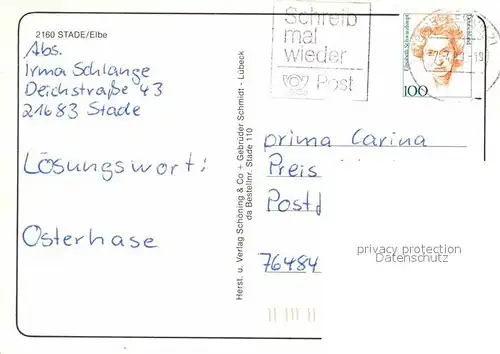 2160 STADE/Elbe
Abs.
Irma Schlange
Deichstraße 43
21683 Stade
Lösungswort:
Osterhase
Herst. u. Verlag Schöning & Co + Gebrüder Schmidt - Lübeck
da Bestellnr. Stade 110
Schreib
mal
wieder
Post
100
prima Carina
Preis
Postf
76484
privacy protection
Datenschutz